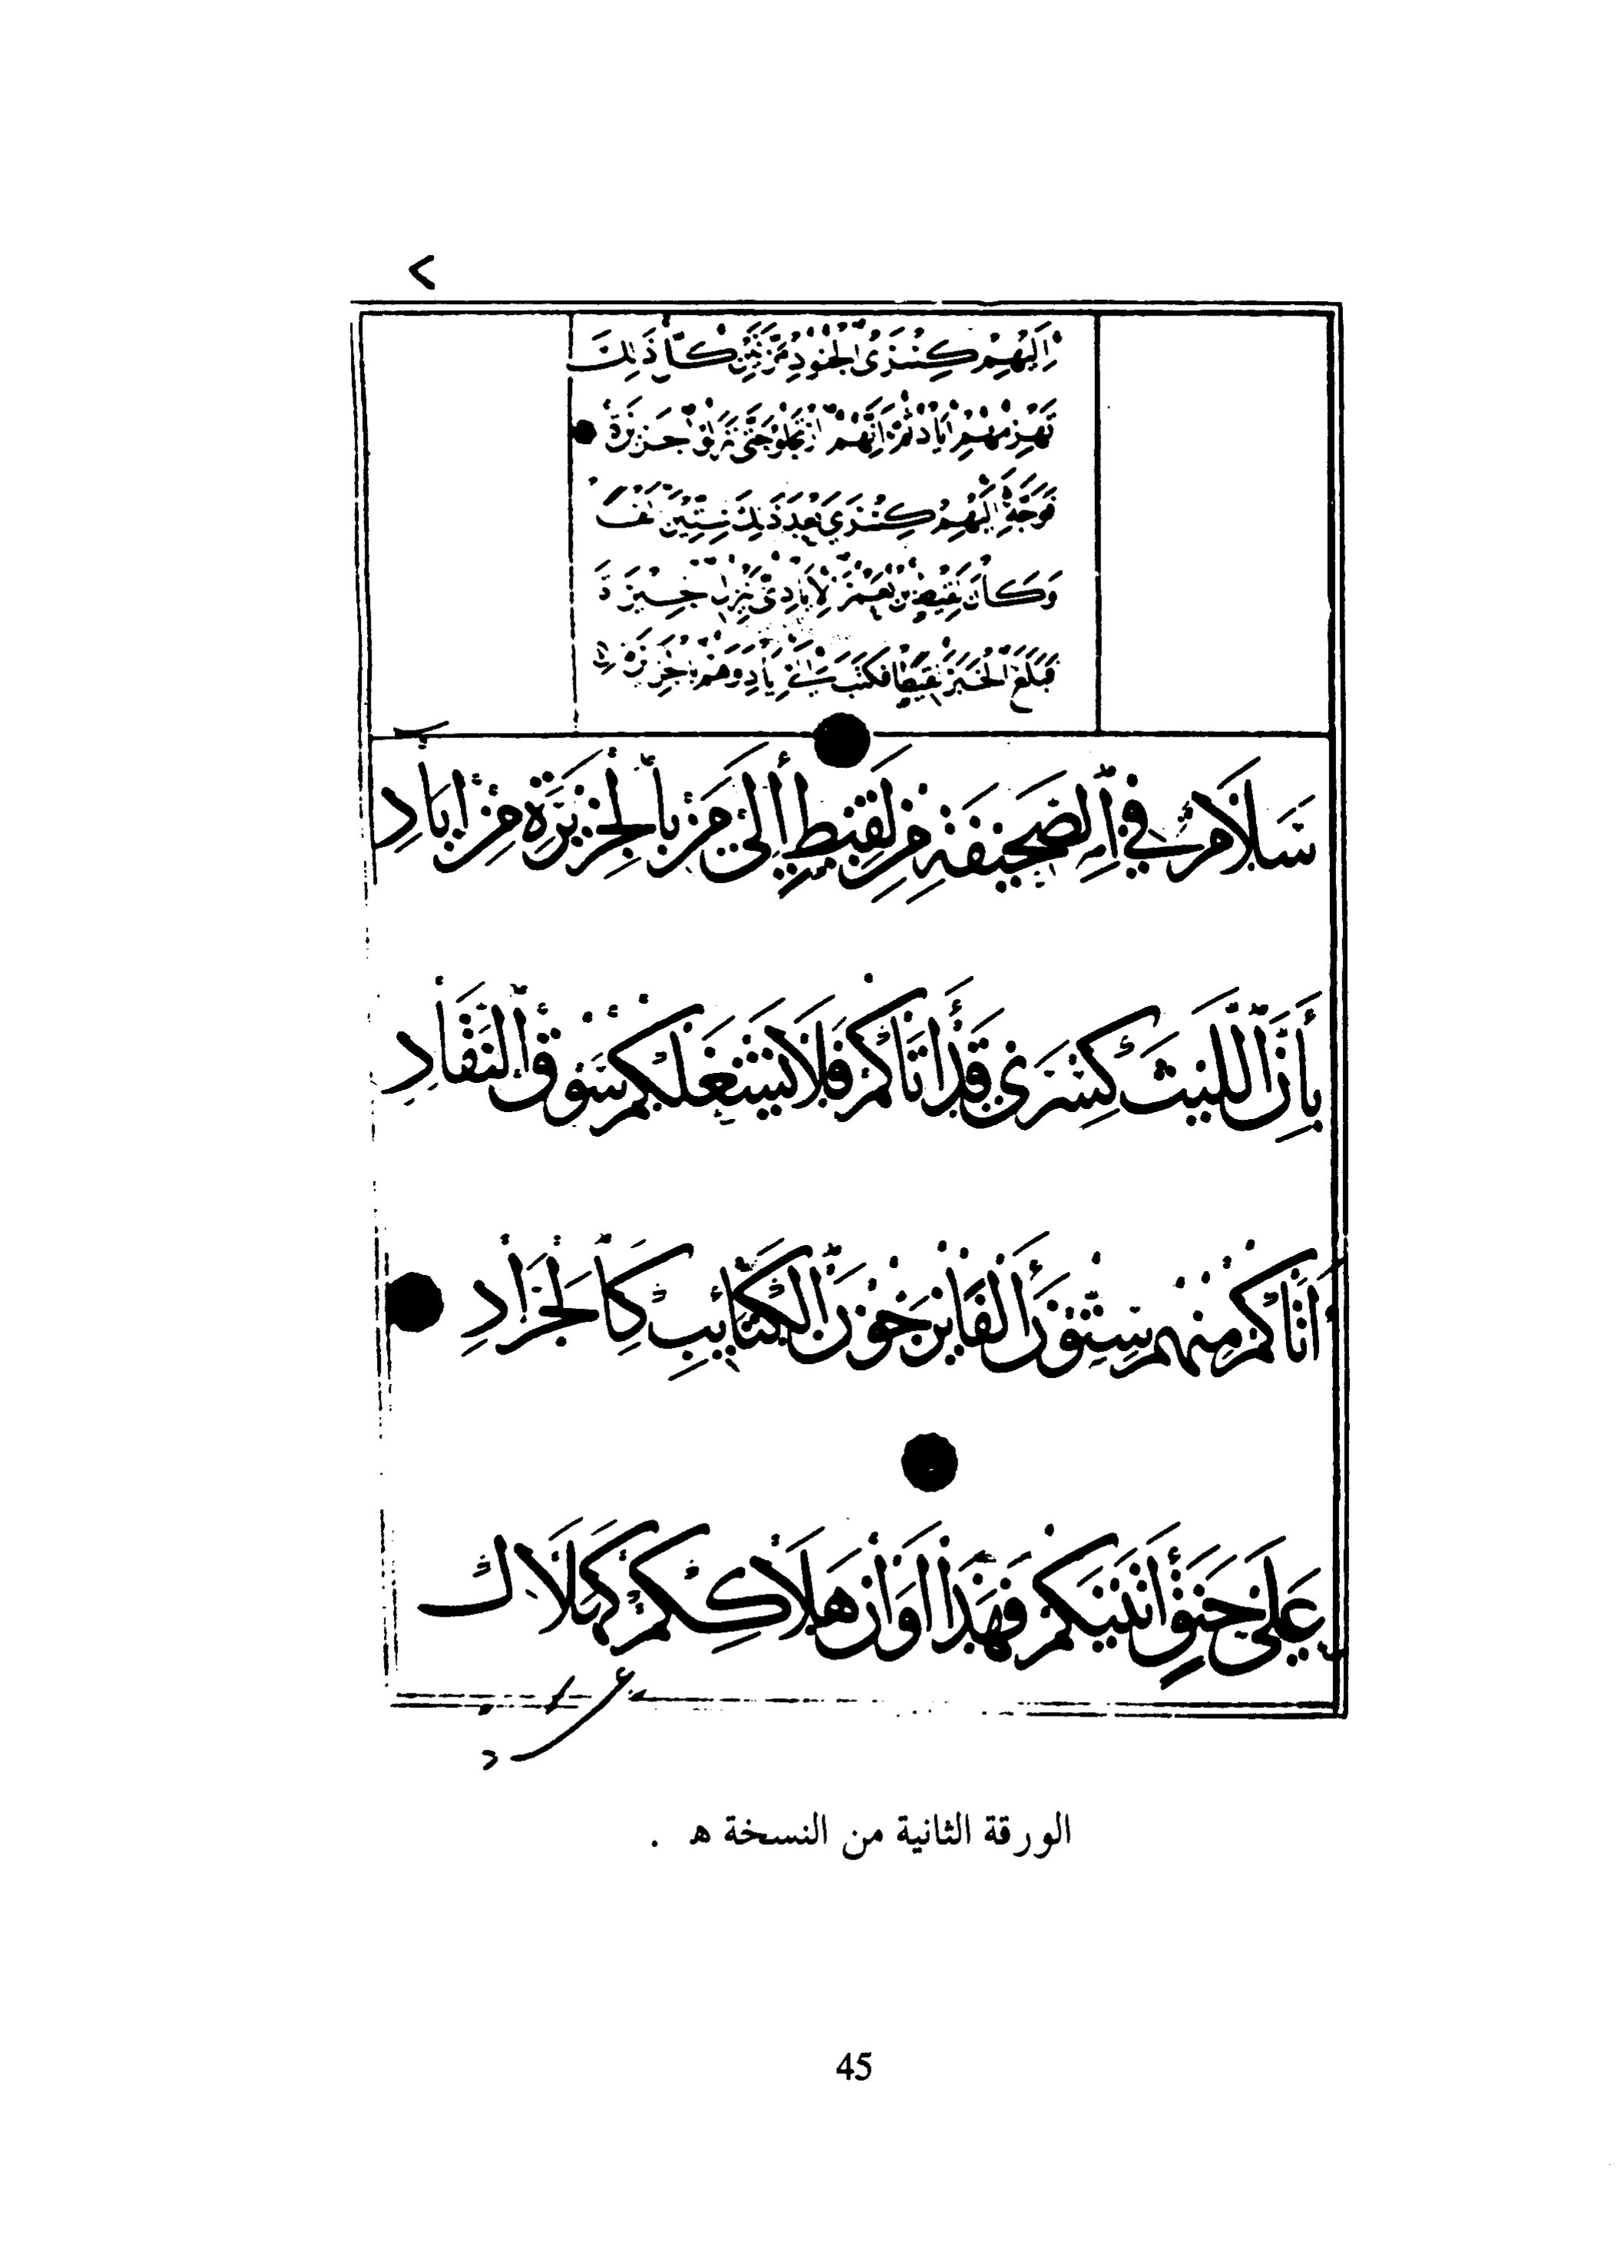 ٢
إِلَيْهِمْ كِسْرَىٰ الْجُنُودَ مَرَّتَيْنِ كُلَّ ذَلِكَ
تَهْزِمُهُمْ إِيَادٌ ثُمَّ إِنَّهُمْ ارْتَحَلُوا حَتَّى نَزَلُوا الْجَزِيرَةَ
فَوَجَّهَ إِلَيْهِمْ كِسْرَى بَعْدَ ذَلِكَ سِتِّينَ أَلْفًا
وَكَانَ لَقِيطُ بْنُ يَعْمَرَ الْإِيَادِيُّ يَنْزِلُ الْحِيرَةَ
فَبَلَغَ الْخَبَرُ لَقِيطًا فَكَتَبَ إِلَى إِيَادٍ وَهُمْ بِالْجَزِيرَةِ
سَلَامٌ فِي الصَّحِيفَةِ مِنْ لَقِيطٍ إِلَى مَنْ بِالْجَزِيرَةِ مِنْ إِيَادِ
بِأَنَّ اللَّيْثَ كِسْرَى قَدْ أَتَاكُمْ فَلَا يَشْغَلْكُمْ سَوْقُ النِّقَادِ
أَتَاكُمْ مِنْهُمْ سِتُّونَ أَلْفًا يَزُجُّونَ الْكَتَائِبَ كَالْجَرَادِ
عَلَى حَنَقٍ أَتَيْنَكُمْ فَهَذَا أَوَانُ هَلَاكِكُمْ كَهَلَاكِ
عاد
الورقة الثانية من النسخة ه .
45